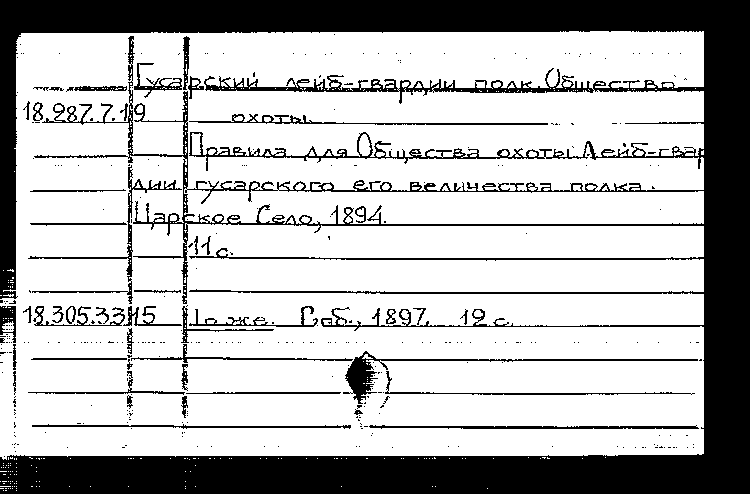 Гусарский лейб-гвардии полк. Общество
18.287.7.19 охоты.
Правила для Общества охоты Лейб-гвар
дии гусарского его величества полка.
Царское Село, 1894.
11 с.
18.305.3.315 То же. Спб., 1897. 12 с.